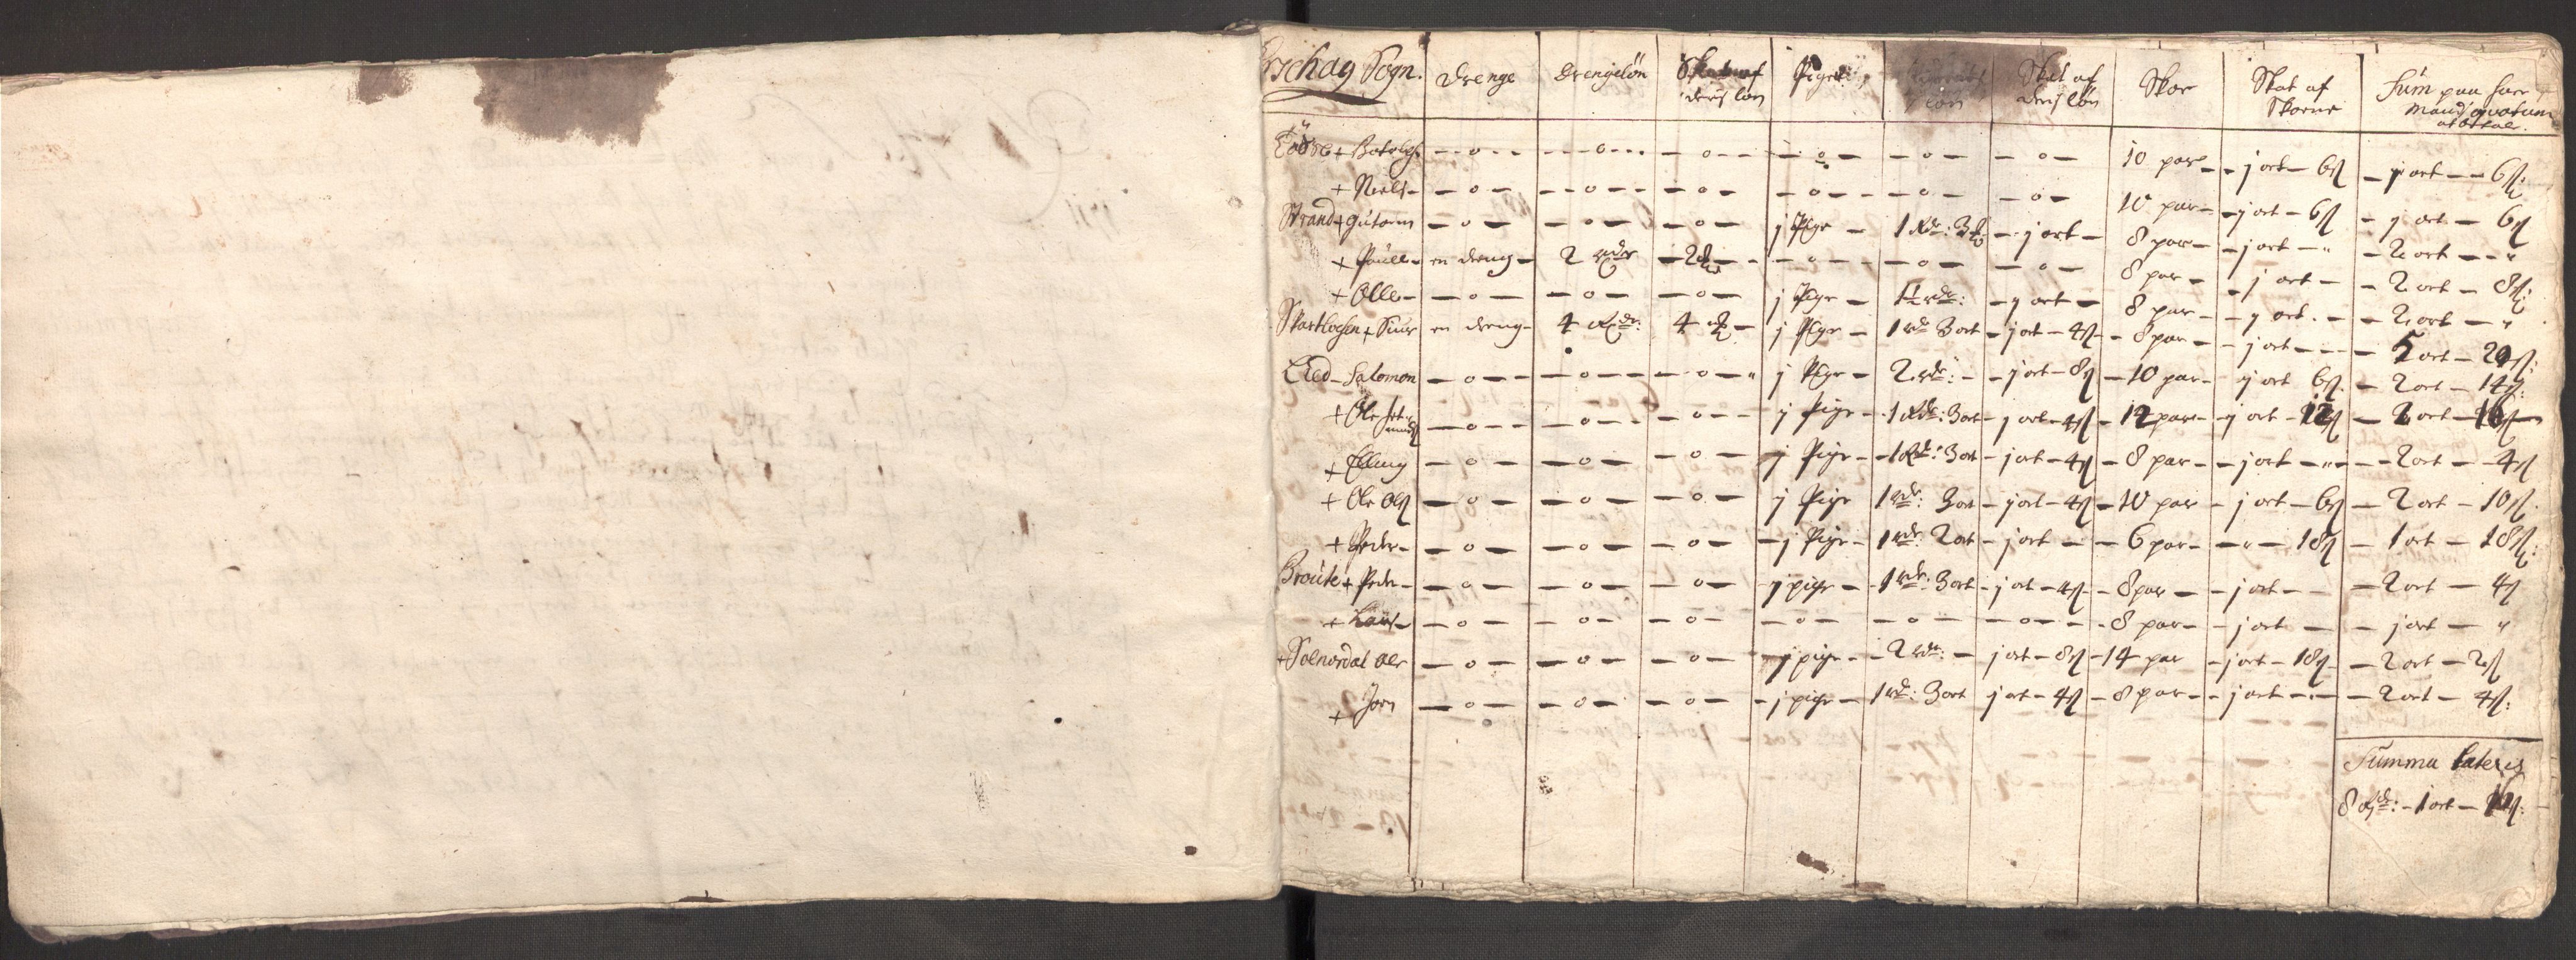 Ørschag Sogn. Drenge Drengeløn Skat af deris løn Piger løn Skat af deris løn Skoe Skat af Skoene Sum paa huer Mand qvotum at betale.
+ Botolf - o - - o - - o - - o - - o - - o - 10 par - j ort - 6 ß - j ort - 6 ß:
+ Niels - - o - - o - - o - - o - - o - - o - 10 par - j ort - 6 ß - j ort - 6 ß
Strand + Gutorm - o - - o - - o - j Pige - 1 Rdr: 3 - j ort - 8 par - j ort - " - 2 ort - "
+ Poulle - en dreng - 2 rdr - 2 - - o - - o - - o - 8 par - j ort - - 2 ort - 8 ß:
+ Olle - - o - - o - - o - j Pige - 1½ rdr: - j ort - 8 par - j ort - - 2 ort - "
Skartlosen + Siur en dreng - 4 Rdr: 4 - j Pige - 1 rdr 3 ort - j ort - 4 ß - 8 par - j ort - - 5 ort - 20 ß:
Lied - Salomon - o - - o - - o - " j Pige - 2 rdr: - - j ort - 8 ß - 10 par - j ort 6 ß - 2 ort - 14 ß:
+ Ole - o - - o - - o - j Pige - 1 Rdr: 3 ort - j ort - 4 ß - 12 par - j ort - 12 ß - 2 ort - 16 ß
+ Elling - o - - o - - o - j Pige - 1 Rdr: 3 ort - j ort - 4 ß - 8 par - j ort - " - 2 ort - 4 ß
+ Ole Olß - o - - o - - o - j Pige 1 rdr: 3 ort - j ort - 4 ß - 10 par - j ort - 6 ß - 2 ort - 10 ß.
+ Peder - - o - - o - - o - - j Pige - 1 rdr: 2 ort - j ort - - 6 par - - " - 18 ß - 1 ort - 18 ß:
Broute + Peder - - o - - o - - o - j pige - 1 rdr: 3 ort - j ort - 4 ß - 8 par - - j ort - - 2 ort - 4 ß
+ Lars - - o - - o - - o - - o - - o - - o - - 8 par - - j ort - - j ort - "
+ Solnordal Ole - o - - o - - o - - j pige - 2 rdr: - j ort - 8 ß - 14 par - j ort - 18 ß - 2 ort - 2 ß
+ Jorn - o - - o - - o - - j pige - 1 rdr: 3 ort j ort - 4 ß - 8 par - - j ort - - 2 ort - 4 ß:
Summa Lateris
8 Rdr: - 1 ort -